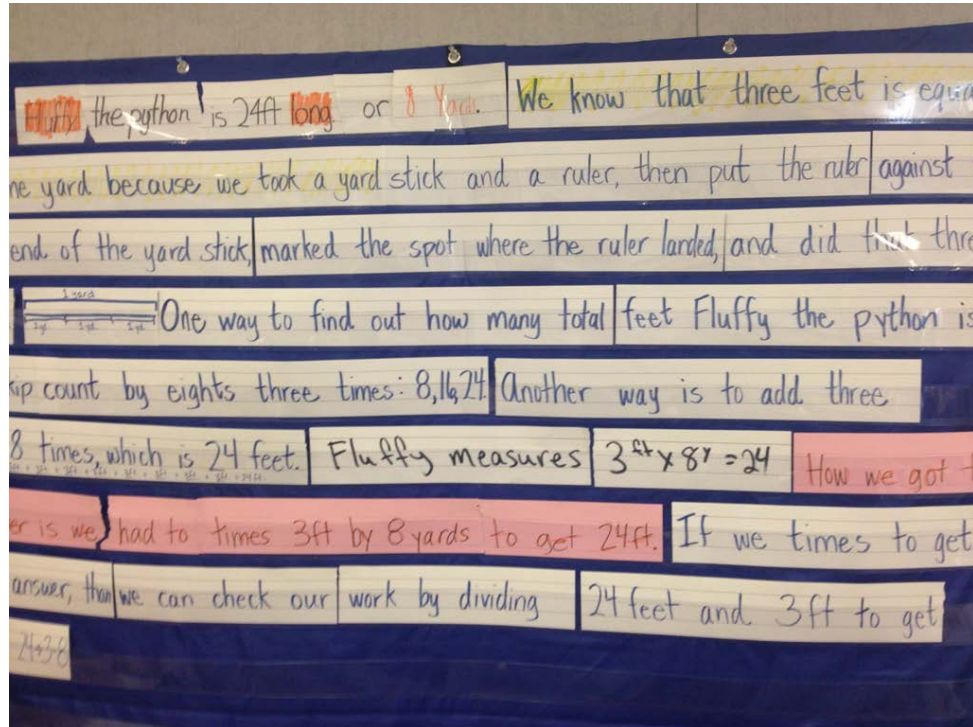 Fluffy the python is 24ft long or 8 Yards. We know that three feet is equa
ne yard because we took a yard stick and a ruler, then put the ruler against
end of the yard stick, marked the spot where the ruler landed, and did that thre
1 yard
One way to find out how many total feet Fluffy the python is
ip count by eights three times: 8,16,24. Another way is to add three
8 times, which is 24 feet. Fluffy measures 3ft x 8y = 24 How we got t
er is we had to times 3ft by 8 yards to get 24ft. If we times to get
answer, than we can check our work by dividing 24 feet and 3ft to get
24÷3=8